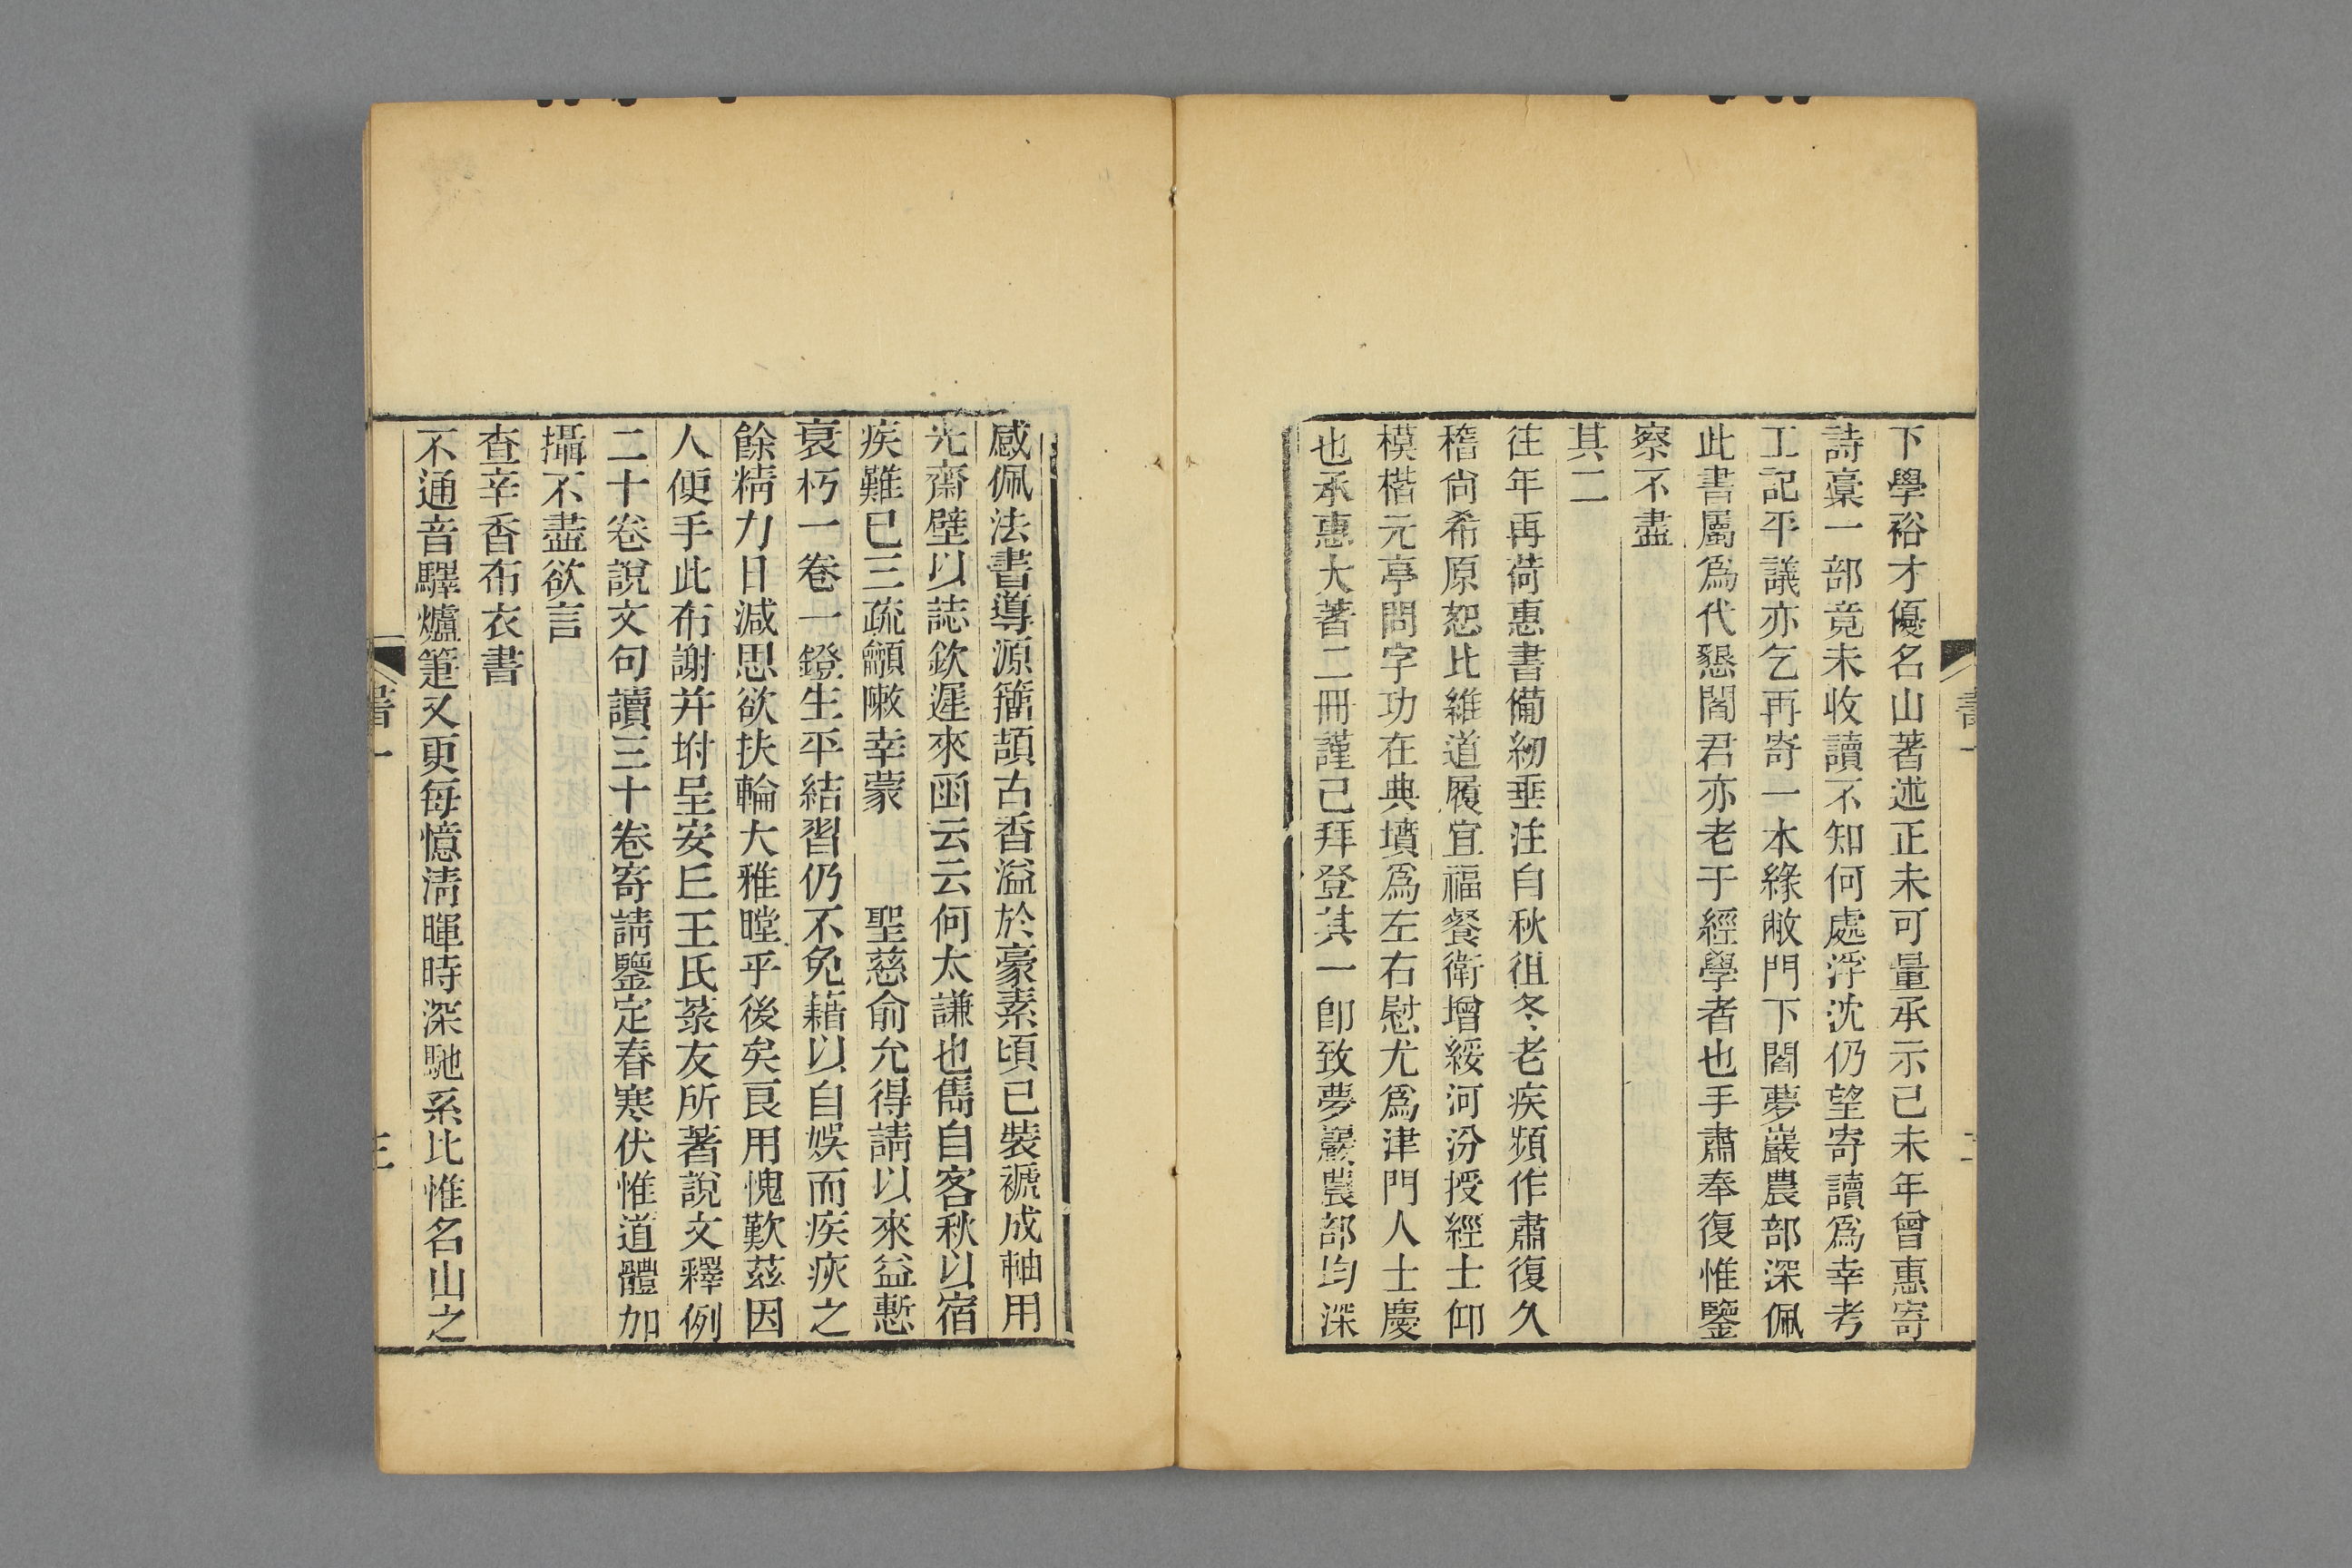 下學裕才優名山著述正未可量承示己未年曾惠寄
詩稾一部竟未收讀不知何處浮沈仍望寄讀爲幸考
工記平議亦乞再寄一本緣敝門下閻夢巖農部深佩
此書屬爲代懇閻君亦老于經學者也手肅奉復惟鑒
察不盡
其二
往年再荷惠書備紉垂注自秋徂冬老疾頻作肅復久
稽尙希原恕比維道履宜福餐衛增綏河汾授經士仰
模楷元亭問字功在典墳爲左右慰尤爲津門人士慶
也承惠大著二冊謹己拜登其一卽致夢巖農部均深
感佩法書導源籒頡古香溢於豪素頃已裝褫成軸用
光齋壁以誌欽遲來函云云何太謙也雋自客秋以宿
疾難已三疏籲陳幸蒙　聖慈俞允得請以來益慙
衰朽一卷一鐙生平結習仍不免藉以自娛而疾疢之
餘精力日減思欲扶輪大雅瞠乎後矣良用愧歎茲因
人便手此布謝幷坿呈安邱王氏菉友所著說文釋例
二十卷說文句讀三十卷寄請鑒定春寒伏惟道體加
攝不盡欲言
查辛香布衣書
不通音驛爐箑又更每憶淸暉時深馳系比惟名山之
書一
三